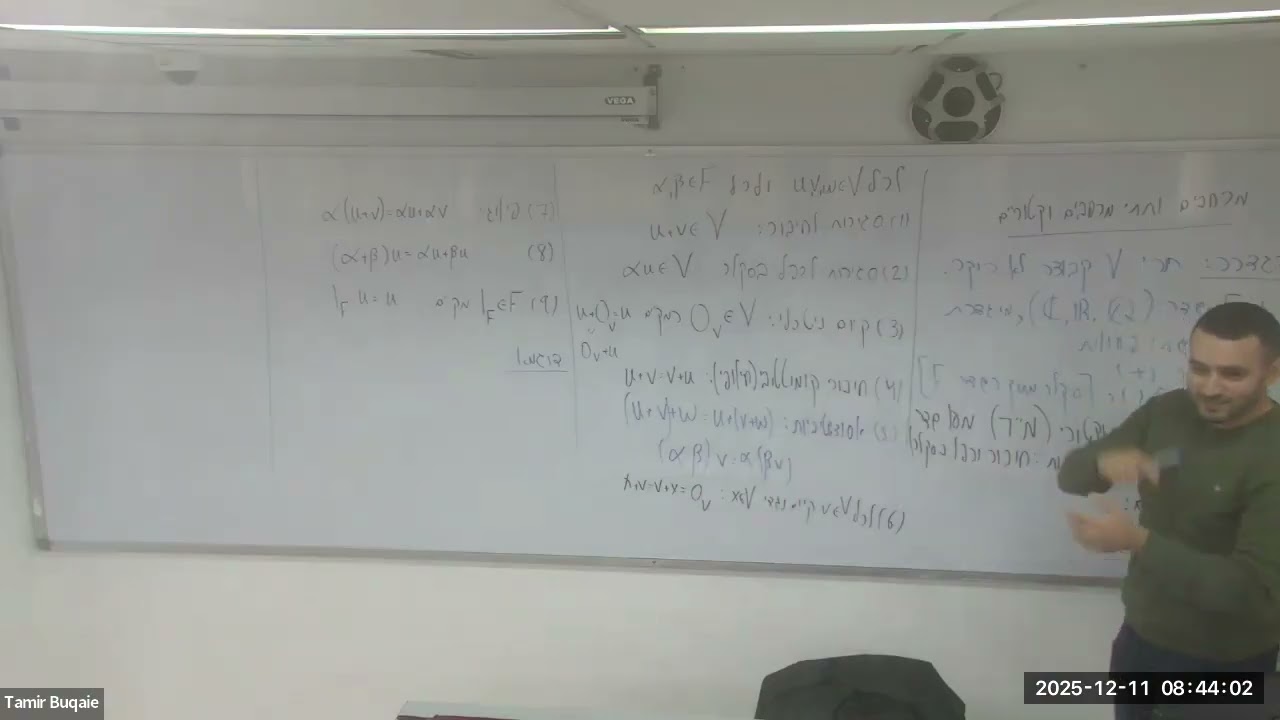 מרחבים ותתי מרחבים וקטורים
הגדרה: תהי V קבוצה לא ריקה.
שדה (ℤ₅, ℝ, ℂ), מוגדרת
פעולות
(+)
[סקלר מתוך השדה F]
וקטורי (מ"ו) מעל שדה
חיבור וכפל בסקלר
לכל u,v,w∈V ולכל α,β∈F
(1) סגירות לחיבור: u+v∈V
(2) סגירות לכפל בסקלר αu∈V
(3) קיום ניטרלי: 0_V∈V המקיים u+0_V=u
0_V+u
(4) חיבור קומוטטיבי (חילופי): u+v=v+u
(5) אסוציאטיביות: (u+v)+w=u+(v+w)
(αβ)v=α(βv)
(6) לכל v∈V קיים נגדי x∈V: x+v=v+x=0_V
(7) פילוג: α(u+v)=αu+αv
(8) (α+β)u=αu+βu
(9) 1_F∈F מקיים 1_F u=u
דוגמא
VEGA
VEGA
Tamir Buqaie
2025-12-11 08:44:02